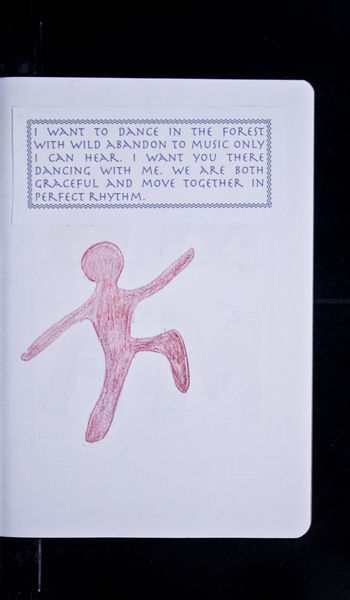 I WANT TO DANCE IN THE FOREST
WITH WILD ABANDON TO MUSIC ONLY
I CAN HEAR. I WANT YOU THERE
DANCING WITH ME. WE ARE BOTH
GRACEFUL AND MOVE TOGETHER IN
PERFECT RHYTHM.